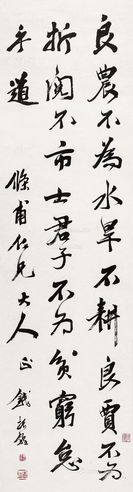 良農不為水旱不耕良賈不為
折閱不市士君子不為貧窮怠
乎道 條甫仁兄大人正 錢振鍠